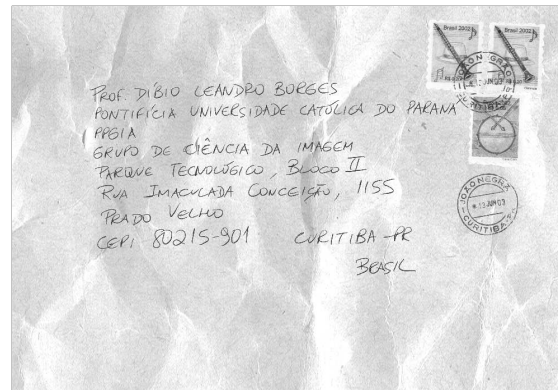 Brasil 2002 Brasil 2002
PROF. DÍBIO LEANDRO BORGES
PONTIFÍCIA UNIVERSIDADE CATÓLICA DO PARANÁ
PPGIA
GRUPO DE CIÊNCIA DA IMAGEM
PARQUE TECNOLÓGICO, BLOCO II
RUA IMACULADA CONCEIÇÃO, 1155
PRADO VELHO
CEP: 80215-901 CURITIBA-PR
BRASIL
JOÃO NEGRÃO
CURITIBA
JOÃO NEGRÃO
13 JUN 03
CURITIBA-PR